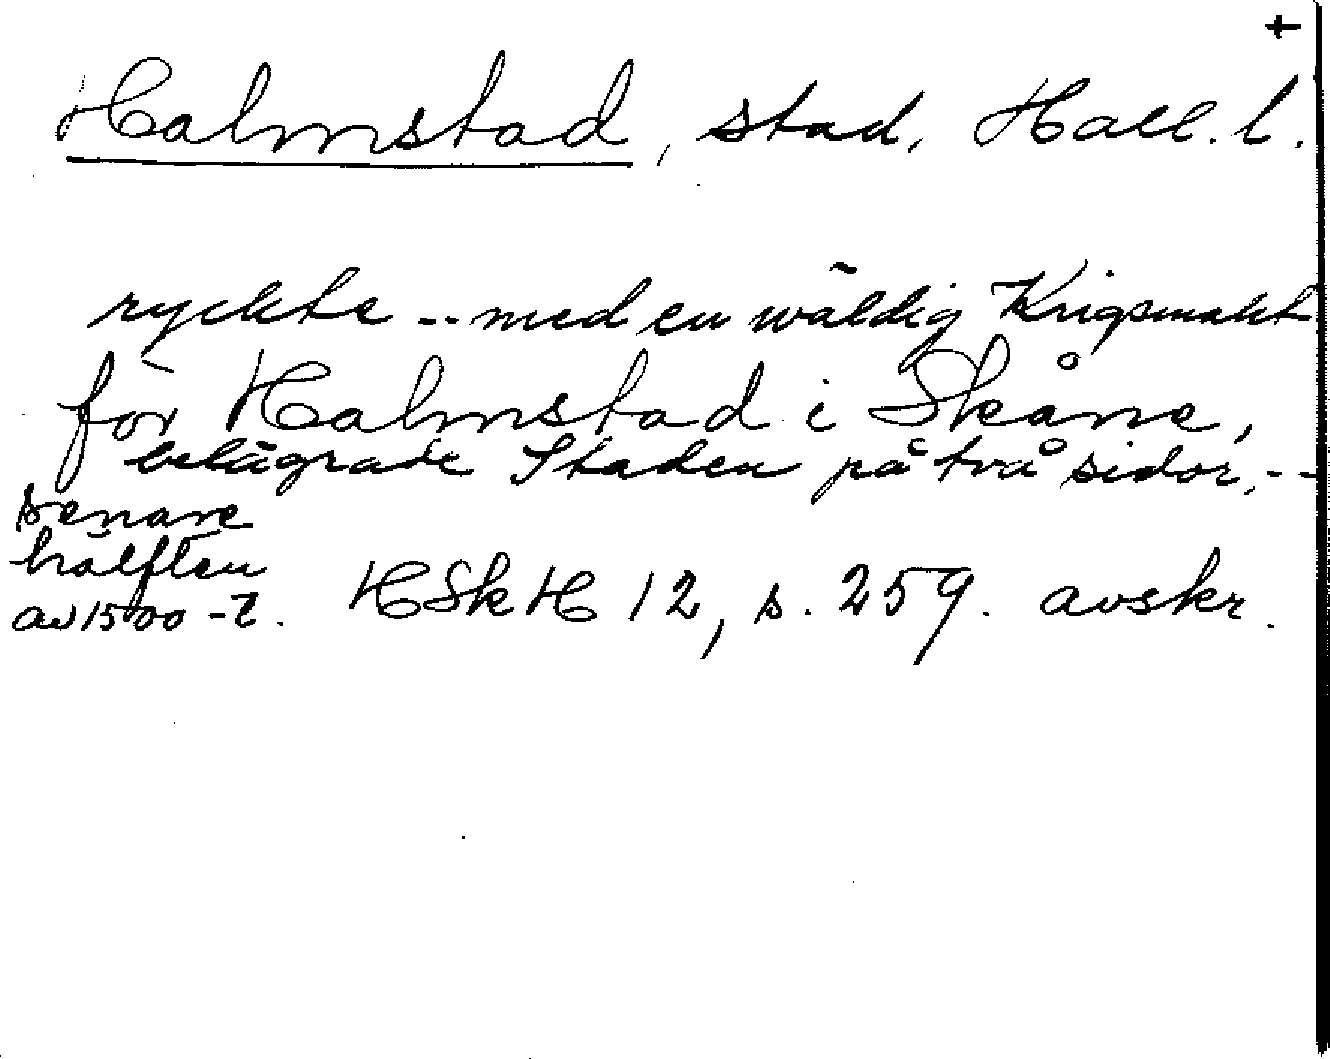 +
Halmstad, stad, Hall. l.
ryckte -- med en wäldig Krigsmakt
för Halmstad i Skåne,
belägrade Staden på två sidor, --
senare
hälften
av 1500-t. HSkH 12, s. 259. avskr.